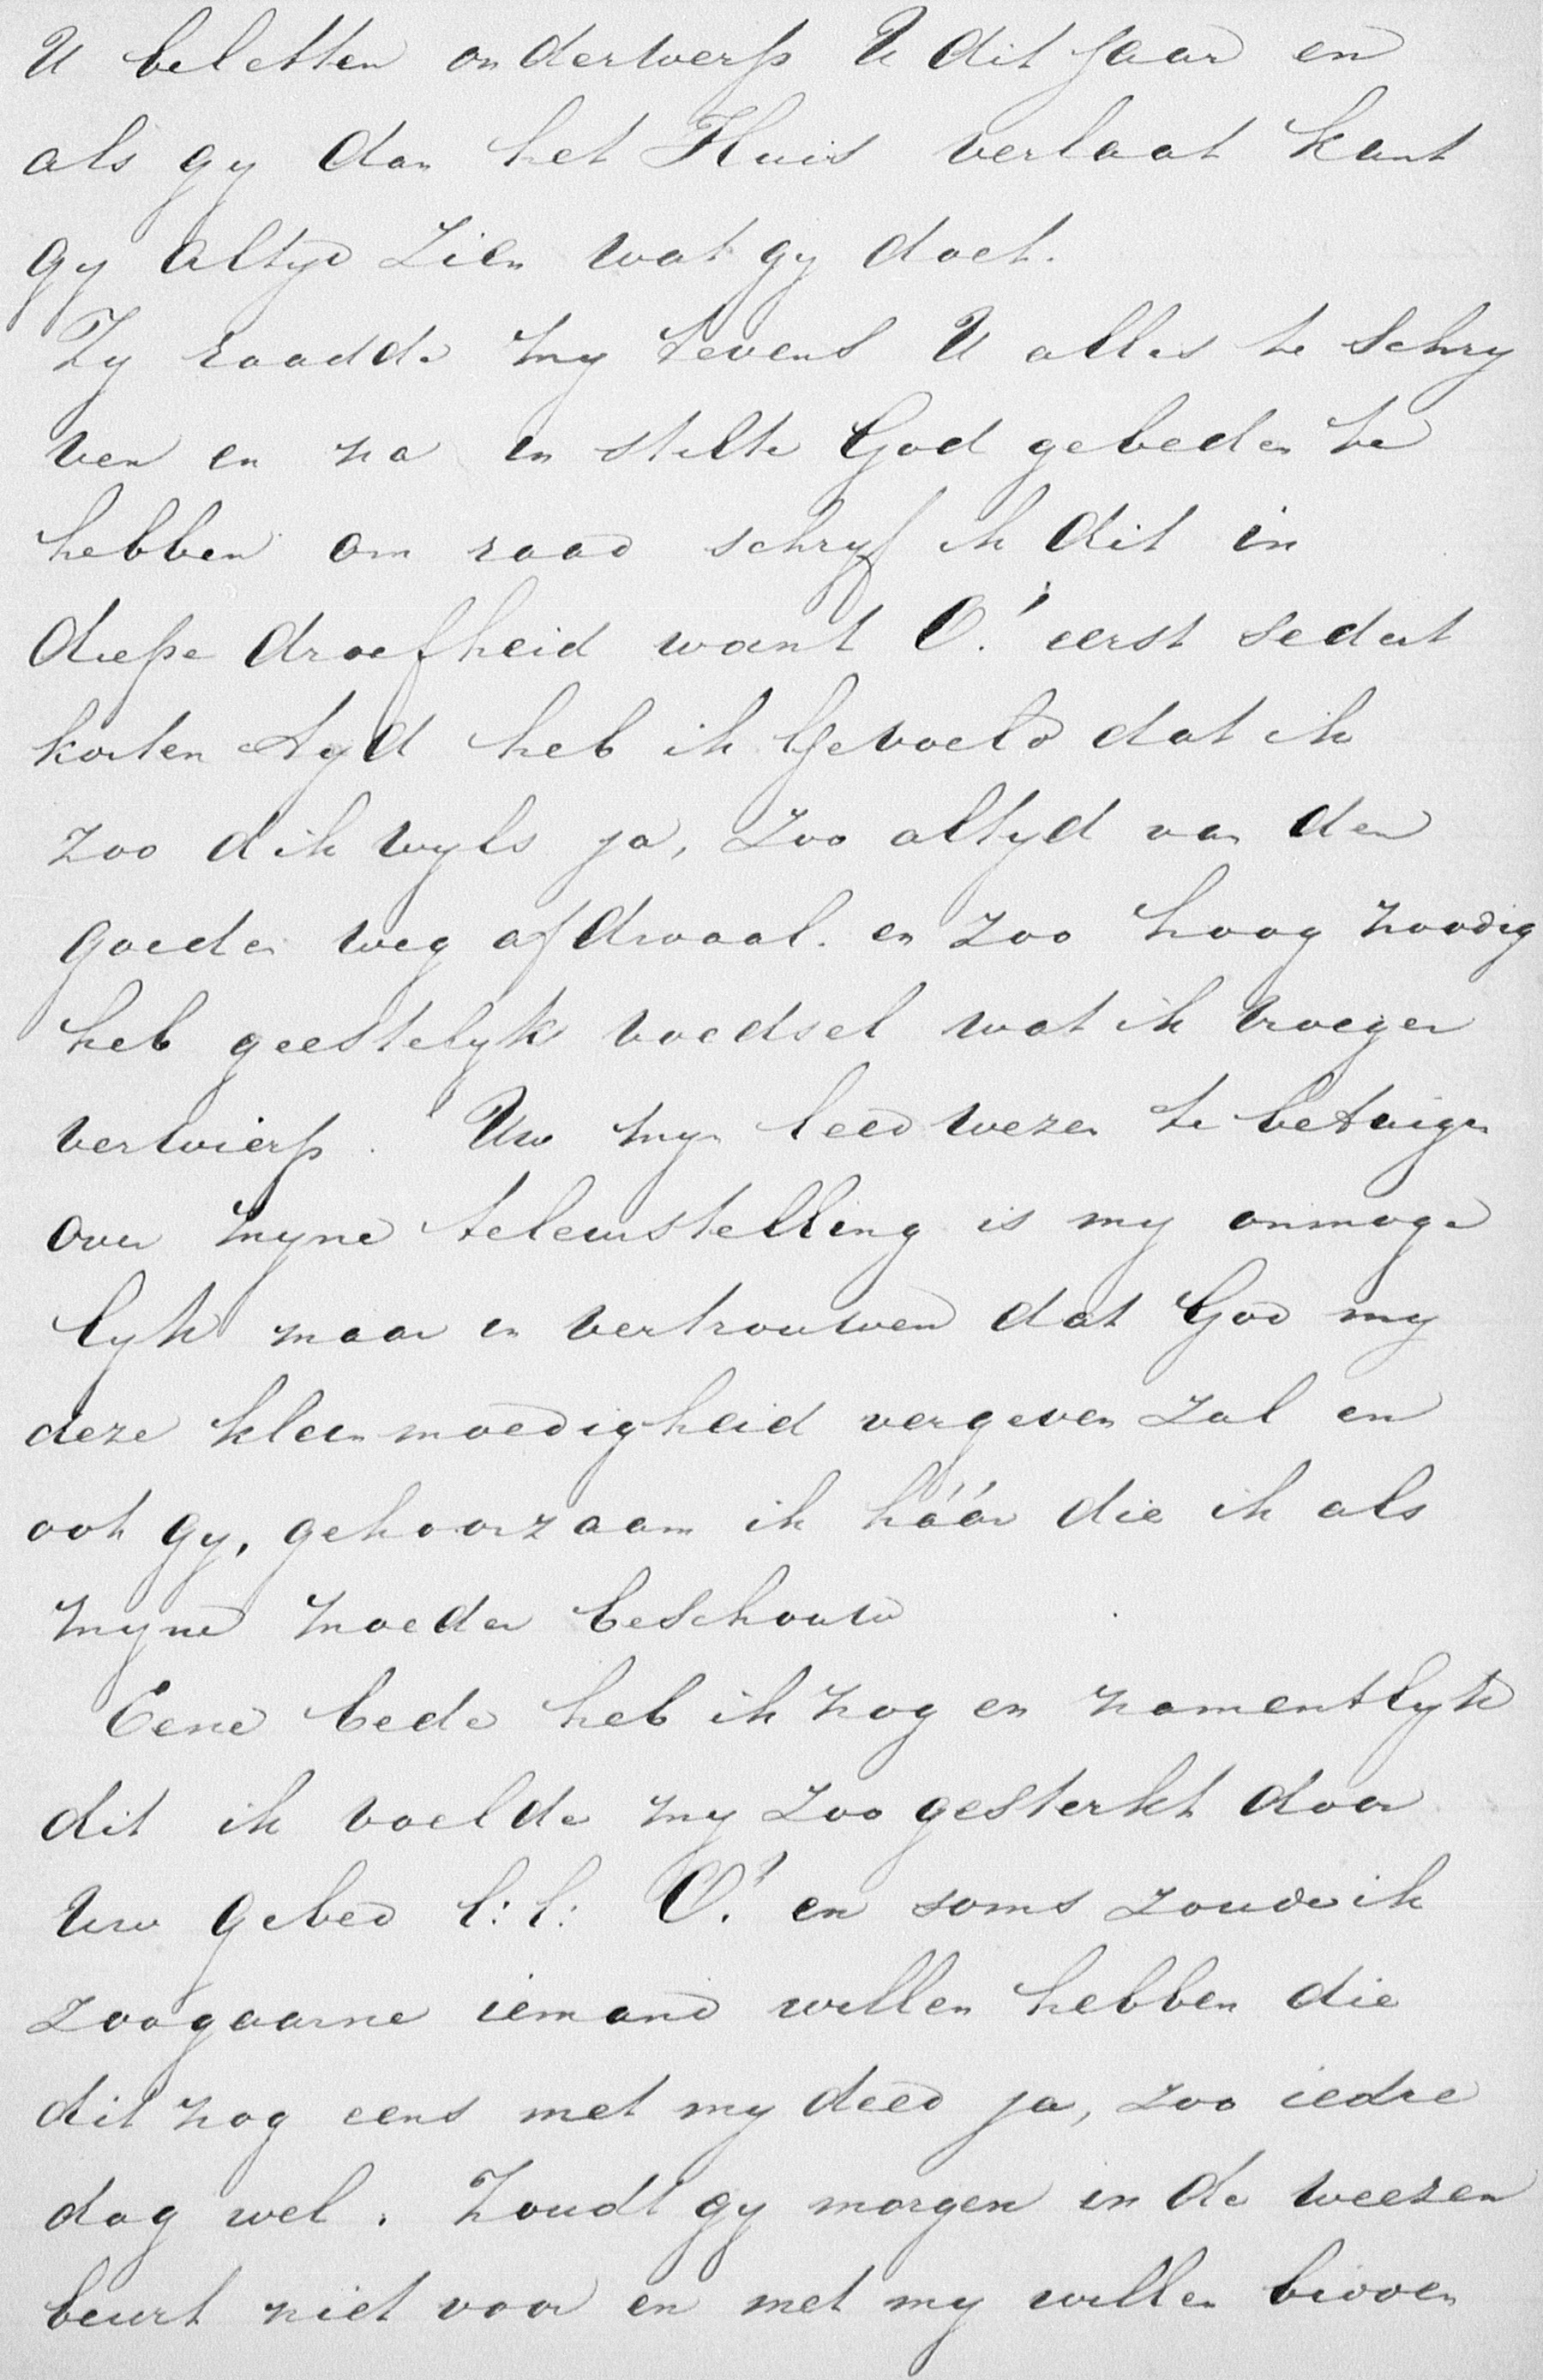 U beletten onderwerp U dit Jaar en
als gy dan het Huis verlaat kunt
gy altyd zien wat gy doet.
Zy raadde my tevens U alles te schry
ven en na in stilte God gebeden te
hebben om raad schryf ik dit in
diepe droefheid want O.! eerst sedert
korten tyd heb ik Gevoeld dat ik
zoo dikwyls ja, zoo altyd van den
goeden weg afdwaal. en zoo hoog noodig
heb geestelyk voedsel wat ik vroeger
verwierp. Uw myn leedwezen te betuigen
over myne teleurstelling is my onmoge
lyk maar in vertrouwen dat God my
deze kleinmoedigheid vergeven zal en
ook gy, gehoorzaam ik háár die ik als
myne moeder beschouw
Eene bede heb ik nog en namentlyk
dit ik voelde my zoo gesterkt door
Uw gebed l:l: O.! en soms zoude ik
zoogaarne iemand willen hebben die
dit nog eens met my deed ja, zoo iedre
dag wel. Zoudt gy morgen in de weezen
beurt niet voor en met my willen bidden